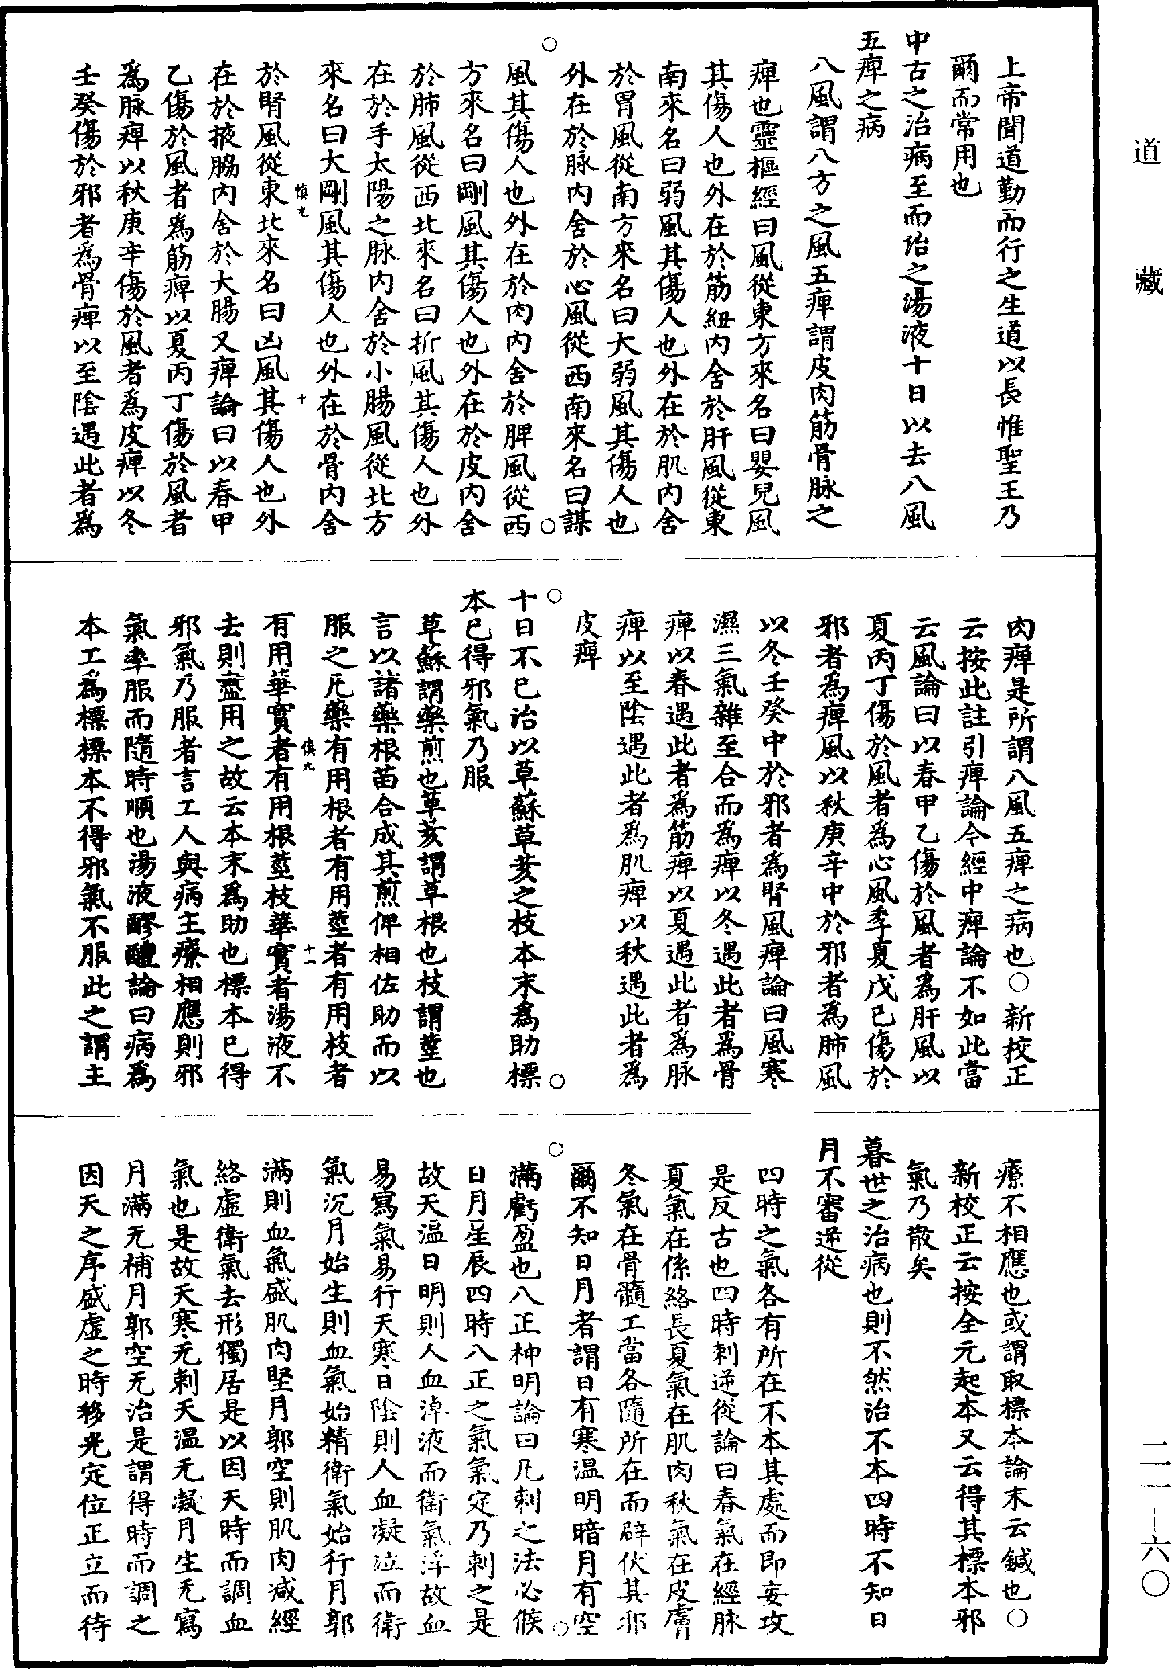 道藏
上帝聞道勤而行之生道以長惟聖王乃
爾而常用也
中古之治病至而治之湯液十日以去八風
五痺之病
八風謂八方之風五痺謂皮肉筋骨脉之
痺也靈樞經曰風從東方來名曰嬰兒風
其傷人也外在於筋紐內舍於肝風從東
南來名曰弱風其傷人也外在於肌內舍
於胃風從南方來名曰大弱風其傷人也
外在於脉內舍於心風從西南來名曰謀
風其傷人也外在於肉內舍於脾風從西
方來名曰剛風其傷人也外在於皮內舍
於肺風從西北來名曰折風其傷人也外
在於手太陽之脉內舍於小腸風從北方
來名曰大剛風其傷人也外在於骨內舍
慎九 十
於腎風從東北來名曰凶風其傷人也外
在於掖脇內舍於大腸又痺論曰以春甲
乙傷於風者為筋痺以夏丙丁傷於風者
為脉痺以秋庚辛傷於風者為皮痺以冬
壬癸傷於邪者為骨痺以至陰遇此者為
肉痺是所謂八風五痺之病也○新校正
云按此註引痺論今經中痺論不如此當
云風論曰以春甲乙傷於風者為肝風以
夏丙丁傷於風者為心風季夏戊己傷於
邪者為痺風以秋庚辛中於邪者為肺風
以冬壬癸中於邪者為腎風痺論曰風寒
濕三氣雜至合而為痺以冬遇此者為骨
痺以春遇此者為筋痺以夏遇此者為脉
痺以至陰遇此者為肌痺以秋遇此者為
皮痺
十日不已治以草蘇草荄之枝本末為助標
本已得邪氣乃服
草蘇謂藥煎也草荄謂草根也枝謂莖也
言以諸藥根苗合成其煎俾相佐助而以
服之凡藥有用根者有用莖者有用枝者
慎九 十一
有用華實者有用根莖枝華實者湯液不
去則盡用之故云本末為助也標本已得
邪氣乃服者言工人與病主療相應則邪
氣率服而隨時順也湯液醪醴論曰病為
本工為標標本不得邪氣不服此之謂主
療不相應也或謂取標本論末云鍼也○
新校正云按全元起本又云得其標本邪
氣乃散矣
暮世之治病也則不然治不本四時不知日
月不審逆從
四時之氣各有所在不本其處而即妄攻
是反古也四時刺逆從論曰春氣在經脉
夏氣在係絡長夏氣在肌肉秋氣在皮膚
冬氣在骨髓工當各隨所在而辟伏其邪
爾不知日月者謂日有寒溫明暗月有空
滿虧盈也八正神明論曰凡刺之法必候
日月星辰四時八正之氣氣定乃刺之是
故天温日明則人血淖液而衛氣浮故血
易寫氣易行天寒日陰則人血凝泣而衛
氣沉月始生則血氣始精衛氣始行月郭
滿則血氣盛肌肉堅月郭空則肌肉減經
絡虛衛氣去形獨居是以因天時而調血
氣也是故天寒无刺天溫无凝月生无寫
月滿无補月郭空无治是謂得時而調之
因天之序盛虛之時移光定位正立而待
二一-六〇